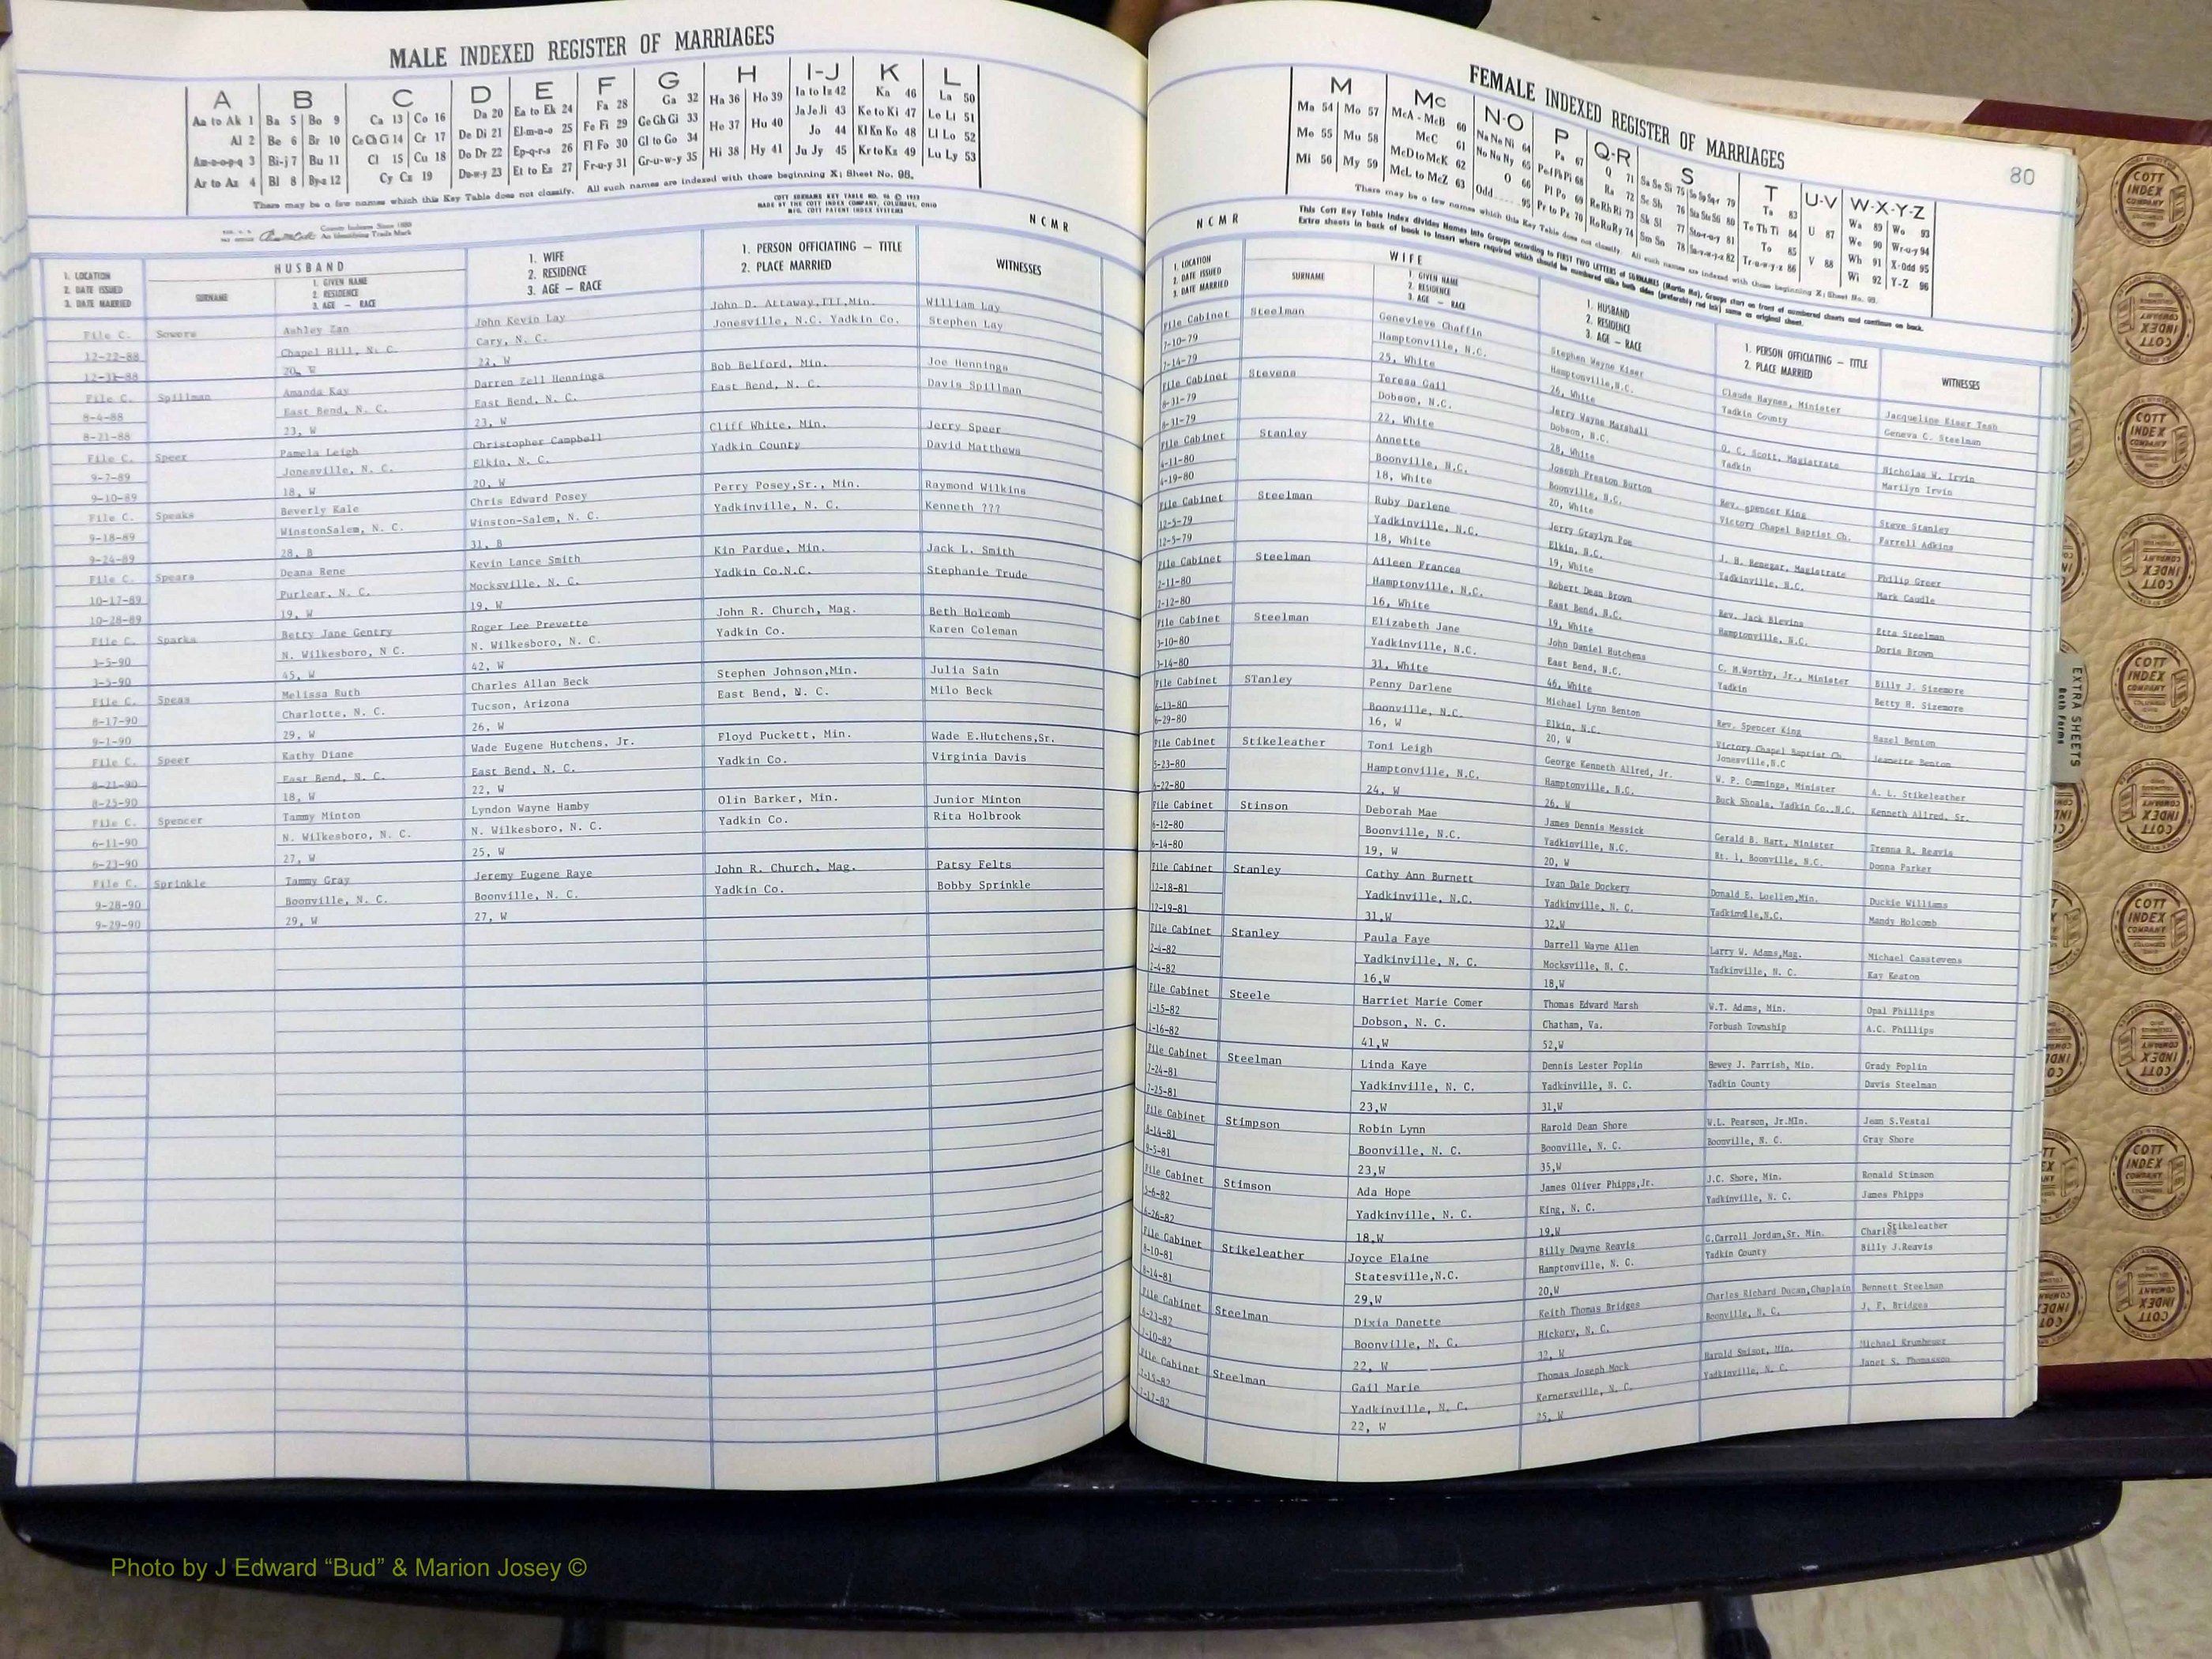 MALE INDEXED REGISTER OF MARRIAGES
A B C D E F G H I-J K L
Aa to Ak 1 Ba 5 Bo 9 Ca 13 Co 16 Da 20 Ea to Ek 24 Fa 28 Ga 32 Ha 36 Ho 39 Ia to Iz 42 Ka 46 La 50
Al 2 Be 6 Br 10 Ce Ch Ci 14 Cr 17 De Di 21 El-m-n-o 25 Fe Fi 29 Ge Gh Gi 33 He 37 Hu 40 Ja Je Ji 43 Ke to Ki 47 Le Li 51
Am-n-o-p-q 3 Bi-j 7 Bu 11 Cl 15 Cu 18 Do Dr 22 Ep-q-r-s 26 Fl Fo 30 Gl to Go 34 Hi 38 Hy 41 Jo 44 Kl Kn Ko 48 Ll Lo 52
Ar to Az 4 Bl 8 By-z 12 Cy Cz 19 Du-w-y 23 Et to Ez 27 Fr-u-y 31 Gr-u-w-y 35 Ju Jy 45 Kr to Kz 49 Lu Ly 53
There may be a few names which this Key Table does not classify. All such names are indexed with those beginning X; Sheet No. 98.
COTT SURNAME KEY TABLE
MADE BY THE COTT INDEX COMPANY, COLUMBUS, OHIO
County Indexes Since 1889
An Identifying Trade Mark
NCMR
1. LOCATION
2. DATE ISSUED
3. DATE MARRIED
HUSBAND
SURNAME
1. GIVEN NAME
2. RESIDENCE
3. AGE — RACE
1. WIFE
2. RESIDENCE
3. AGE — RACE
1. PERSON OFFICIATING — TITLE
2. PLACE MARRIED
WITNESSES
File C. Sowers Ashley Zan John Kevin Lay John D. Attaway,III,Min. William Lay
12-22-88 Chapel Hill, N. C. Cary, N. C. Jonesville, N.C. Yadkin Co. Stephen Lay
12-31-88 20, W 22, W
File C. Spillman Amanda Kay Darren Zell Hennings Bob Belford, Min. Joe Hennings
8-4-88 East Bend, N. C. East Bend, N. C. East Bend, N. C. Davis Spillman
8-21-88 23, W 23, W
File C. Speer Pamela Leigh Christopher Campbell Cliff White, Min. Jerry Speer
9-7-89 Jonesville, N. C. Elkin, N. C. Yadkin County David Matthews
9-10-89 18, W 20, W
File C. Speaks Beverly Kale Chris Edward Posey Perry Posey,Sr., Min. Raymond Wilkins
9-18-89 WinstonSalem, N. C. Winston-Salem, N. C. Yadkinville, N. C. Kenneth ???
9-24-89 28, B 31, B
File C. Spears Deana Rene Kevin Lance Smith Kin Pardue, Min. Jack L. Smith
10-17-89 Purlear, N. C. Mocksville, N. C. Yadkin Co.N.C. Stephanie Trude
10-28-89 19, W 19, W
File C. Sparks Betty Jane Gentry Roger Lee Prevette John R. Church, Mag. Beth Holcomb
3-5-90 N. Wilkesboro, N C. N. Wilkesboro, N. C. Yadkin Co. Karen Coleman
3-5-90 45, W 42, W
File C. Speas Melissa Ruth Charles Allan Beck Stephen Johnson,Min. Julia Sain
8-17-90 Charlotte, N. C. Tucson, Arizona East Bend, N. C. Milo Beck
9-1-90 29, W 26, W
File C. Speer Kathy Diane Wade Eugene Hutchens, Jr. Floyd Puckett, Min. Wade E.Hutchens,Sr.
8-21-90 East Bend, N. C. East Bend, N. C. Yadkin Co. Virginia Davis
8-25-90 18, W 22, W
File C. Spencer Tammy Minton Lyndon Wayne Hamby Olin Barker, Min. Junior Minton
6-11-90 N. Wilkesboro, N. C. N. Wilkesboro, N. C. Yadkin Co. Rita Holbrook
6-23-90 27, W 25, W
File C. Sprinkle Tammy Gray Jeremy Eugene Raye John R. Church, Mag. Patsy Felts
9-28-90 Boonville, N. C. Boonville, N. C. Yadkin Co. Bobby Sprinkle
9-29-90 29, W 27, W
FEMALE INDEXED REGISTER OF MARRIAGES
80
M Mc N-O P Q-R S T U-V W-X-Y-Z
Ma 54 Mo 57 McA - McB 60 Na Ne Ni 64 Pa 67 Q 71 Sa Se Si 75 So Sp Sq-r 79 Ta 83 U 87 Wa 89 Wo 93
Me 55 Mu 58 McC 61 No Nu Ny 65 Pe-f Ph Pi 68 Ra 72 Sc Sh 76 Sta Ste Sti 80 Te Th Ti 84 V 88 We 90 Wr-u-y 94
Mi 56 My 59 McD to McK 62 O 66 Pl Po 69 Re Rh Ri 73 Sk Sl 77 Sto-r-u-y 81 To 85 Wh 91 X-Odd 95
McL to McZ 63 Odd 95 Pr to Pz 70 Ro Ru Ry 74 Sm Sn 78 Su-v-w-y-z 82 Tr-u-w-y-z 86 Wi 92 Y-Z 96
There may be a few names which this Key Table does not classify. All such names are indexed with those beginning X; Sheet No. 98.
This Cott Key Table Index divides Names into Groups according to FIRST TWO LETTERS of SURNAMES (Martin Ma), Groups start on front of numbered sheets and continue on back.
Extra sheets in back of book to insert where required which should be numbered alike both sides (preferably red ink) same as original sheet.
NCMR
1. LOCATION
2. DATE ISSUED
3. DATE MARRIED
WIFE
SURNAME
1. GIVEN NAME
2. RESIDENCE
3. AGE — RACE
1. HUSBAND
2. RESIDENCE
3. AGE — RACE
1. PERSON OFFICIATING — TITLE
2. PLACE MARRIED
WITNESSES
File Cabinet Steelman Genevieve Chaffin Stephen Wayne Kiser Claude Haynes, Minister Jacqueline Kiser Tesh
7-10-79 Hamptonville, N.C. Hamptonville,N.C. Yadkin County Geneva C. Steelman
7-14-79 25, White 26, White
File Cabinet Stevens Teresa Gail Jerry Wayne Marshall O. C. Scott, Magistrate Nicholas W. Irvin
8-31-79 Dobson, N.C. Dobson, N.C. Yadkin Marilyn Irvin
8-31-79 22, White 28, White
File Cabinet Stanley Annette Joseph Preston Burton Rev. Spencer King Steve Stanley
4-11-80 Boonville, N.C. Boonville, N.C. Victory Chapel Baptist Ch. Farrell Adkins
4-19-80 18, White 20, White
File Cabinet Steelman Ruby Darlene Jerry Graylyn Poe J. H. Renegar, Magistrate Philip Greer
12-5-79 Yadkinville, N.C. Elkin, N.C. Yadkinville, N.C. Mark Caudle
12-5-79 18, White 19, White
File Cabinet Steelman Aileen Frances Robert Dean Brown Rev. Jack Blevins Etta Steelman
2-11-80 Hamptonville, N.C. East Bend, N.C. Hamptonville, N.C. Doris Brown
2-12-80 16, White 19, White
File Cabinet Steelman Elizabeth Jane John Daniel Hutchens C. M.Worthy, Jr., Minister Billy J. Sizemore
3-10-80 Yadkinville, N.C. East Bend, N.C. Yadkin Betty H. Sizemore
3-14-80 31, White 46, White
File Cabinet STanley Penny Darlene Michael Lynn Benton Rev. Spencer King Hazel Benton
6-13-80 Boonville, N.C. Elkin, N.C. Victory Chapel Baptist Ch. Jeanette Benton
6-29-80 16, W 20, W Jonesville,N.C
File Cabinet Stikeleather Toni Leigh George Kenneth Allred, Jr. W. P. Cummings, Minister A. L. Stikeleather
5-23-80 Hamptonville, N.C. Hamptonville, N.C. Buck Shoals, Yadkin Co.,N.C. Kenneth Allred, Sr.
6-22-80 24, W 26, W
File Cabinet Stinson Deborah Mae James Dennis Messick Gerald B. Hart, Minister Trenna R. Reavis
6-12-80 Boonville, N.C. Yadkinville, N.C. Rt. 1, Boonville, N.C. Donna Parker
6-14-80 19, W 20, W
File Cabinet Stanley Cathy Ann Burnett Ivan Dale Dockery Donald E. Loellen,Min. Duckie Williams
12-18-81 Yadkinville, N.C. Yadkinville, N. C. Yadkinville,N.C. Mandy Holcomb
12-19-81 31,W 32,W
File Cabinet Stanley Paula Faye Darrell Wayne Allen Larry W. Adams,Mag. Michael Casstevens
2-4-82 Yadkinville, N. C. Mocksville, N. C. Yadkinville, N. C. Kay Keaton
2-4-82 16,W 18,W
File Cabinet Steele Harriet Marie Comer Thomas Edward Marsh W.T. Adams, Min. Opal Phillips
1-15-82 Dobson, N. C. Chatham, Va. Forbush Township A.C. Phillips
1-16-82 41,W 52,W
File Cabinet Steelman Linda Kaye Dennis Lester Poplin Hewey J. Parrish, Min. Grady Poplin
7-24-81 Yadkinville, N. C. Yadkinville, N. C. Yadkin County Davis Steelman
7-25-81 23,W 31,W
File Cabinet Stimpson Robin Lynn Harold Dean Shore W.L. Pearson, Jr.MIn. Jean S.Vestal
8-14-81 Boonville, N. C. Boonville, N. C. Boonville, N. C. Gray Shore
9-5-81 23,W 35,W
File Cabinet Stimson Ada Hope James Oliver Phipps,Jr. J.C. Shore, Min. Ronald Stimson
5-6-82 Yadkinville, N. C. King, N. C. Yadkinville, N. C. James Phipps
6-26-82 18,W 19,W
File Cabinet Stikeleather Joyce Elaine Billy Dwayne Reavis G.Carroll Jordan,Sr. Min. Charles Stikeleather
8-10-81 Statesville,N.C. Hamptonville, N. C. Yadkin County Billy J.Reavis
8-14-81 29,W 20,W
File Cabinet Steelman Dixia Danette Keith Thomas Bridges Charles Richard Ducan,Chaplain Bennett Steelman
6-23-82 Boonville, N. C. Hickory, N. C. Boonville, N. C. J. F. Bridges
7-10-82 22, W 32, W
File Cabinet Steelman Gail Marie Thomas Joseph Mock Harold Smisor, Min. Michael Krumheuer
7-15-82 Yadkinville, N. C. Kernersville, N. C. Yadkinville, N. C. Janet S. Thomasson
7-17-82 22, W 25, W
EXTRA SHEETS
Both Forms
COTT INDEX COMPANY
Photo by J Edward “Bud” & Marion Josey ©